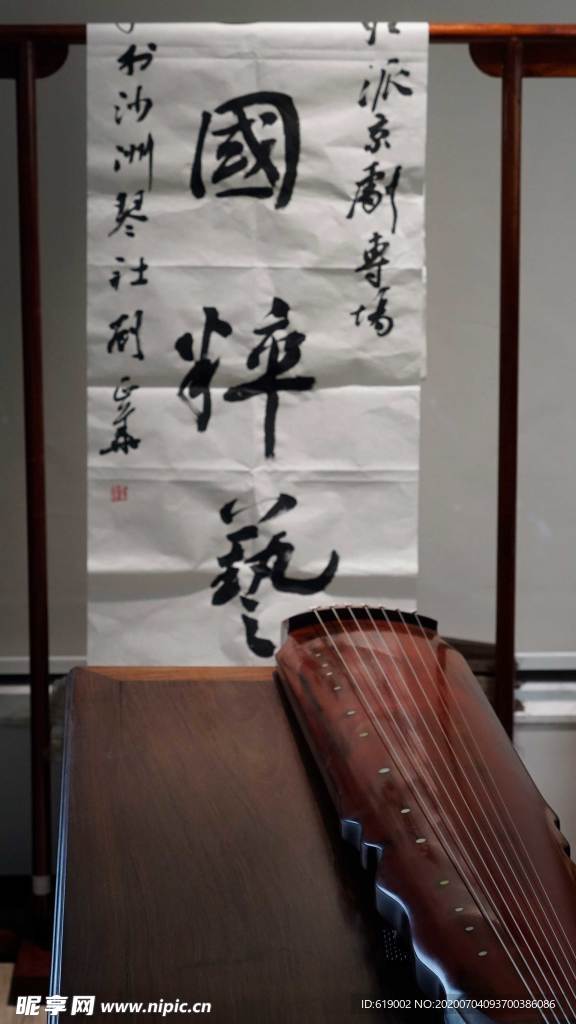 派京劇專場
國粹藝
於沙洲琴社
昵享网 www.nipic.cn
ID:619002 NO:20200704093700386086